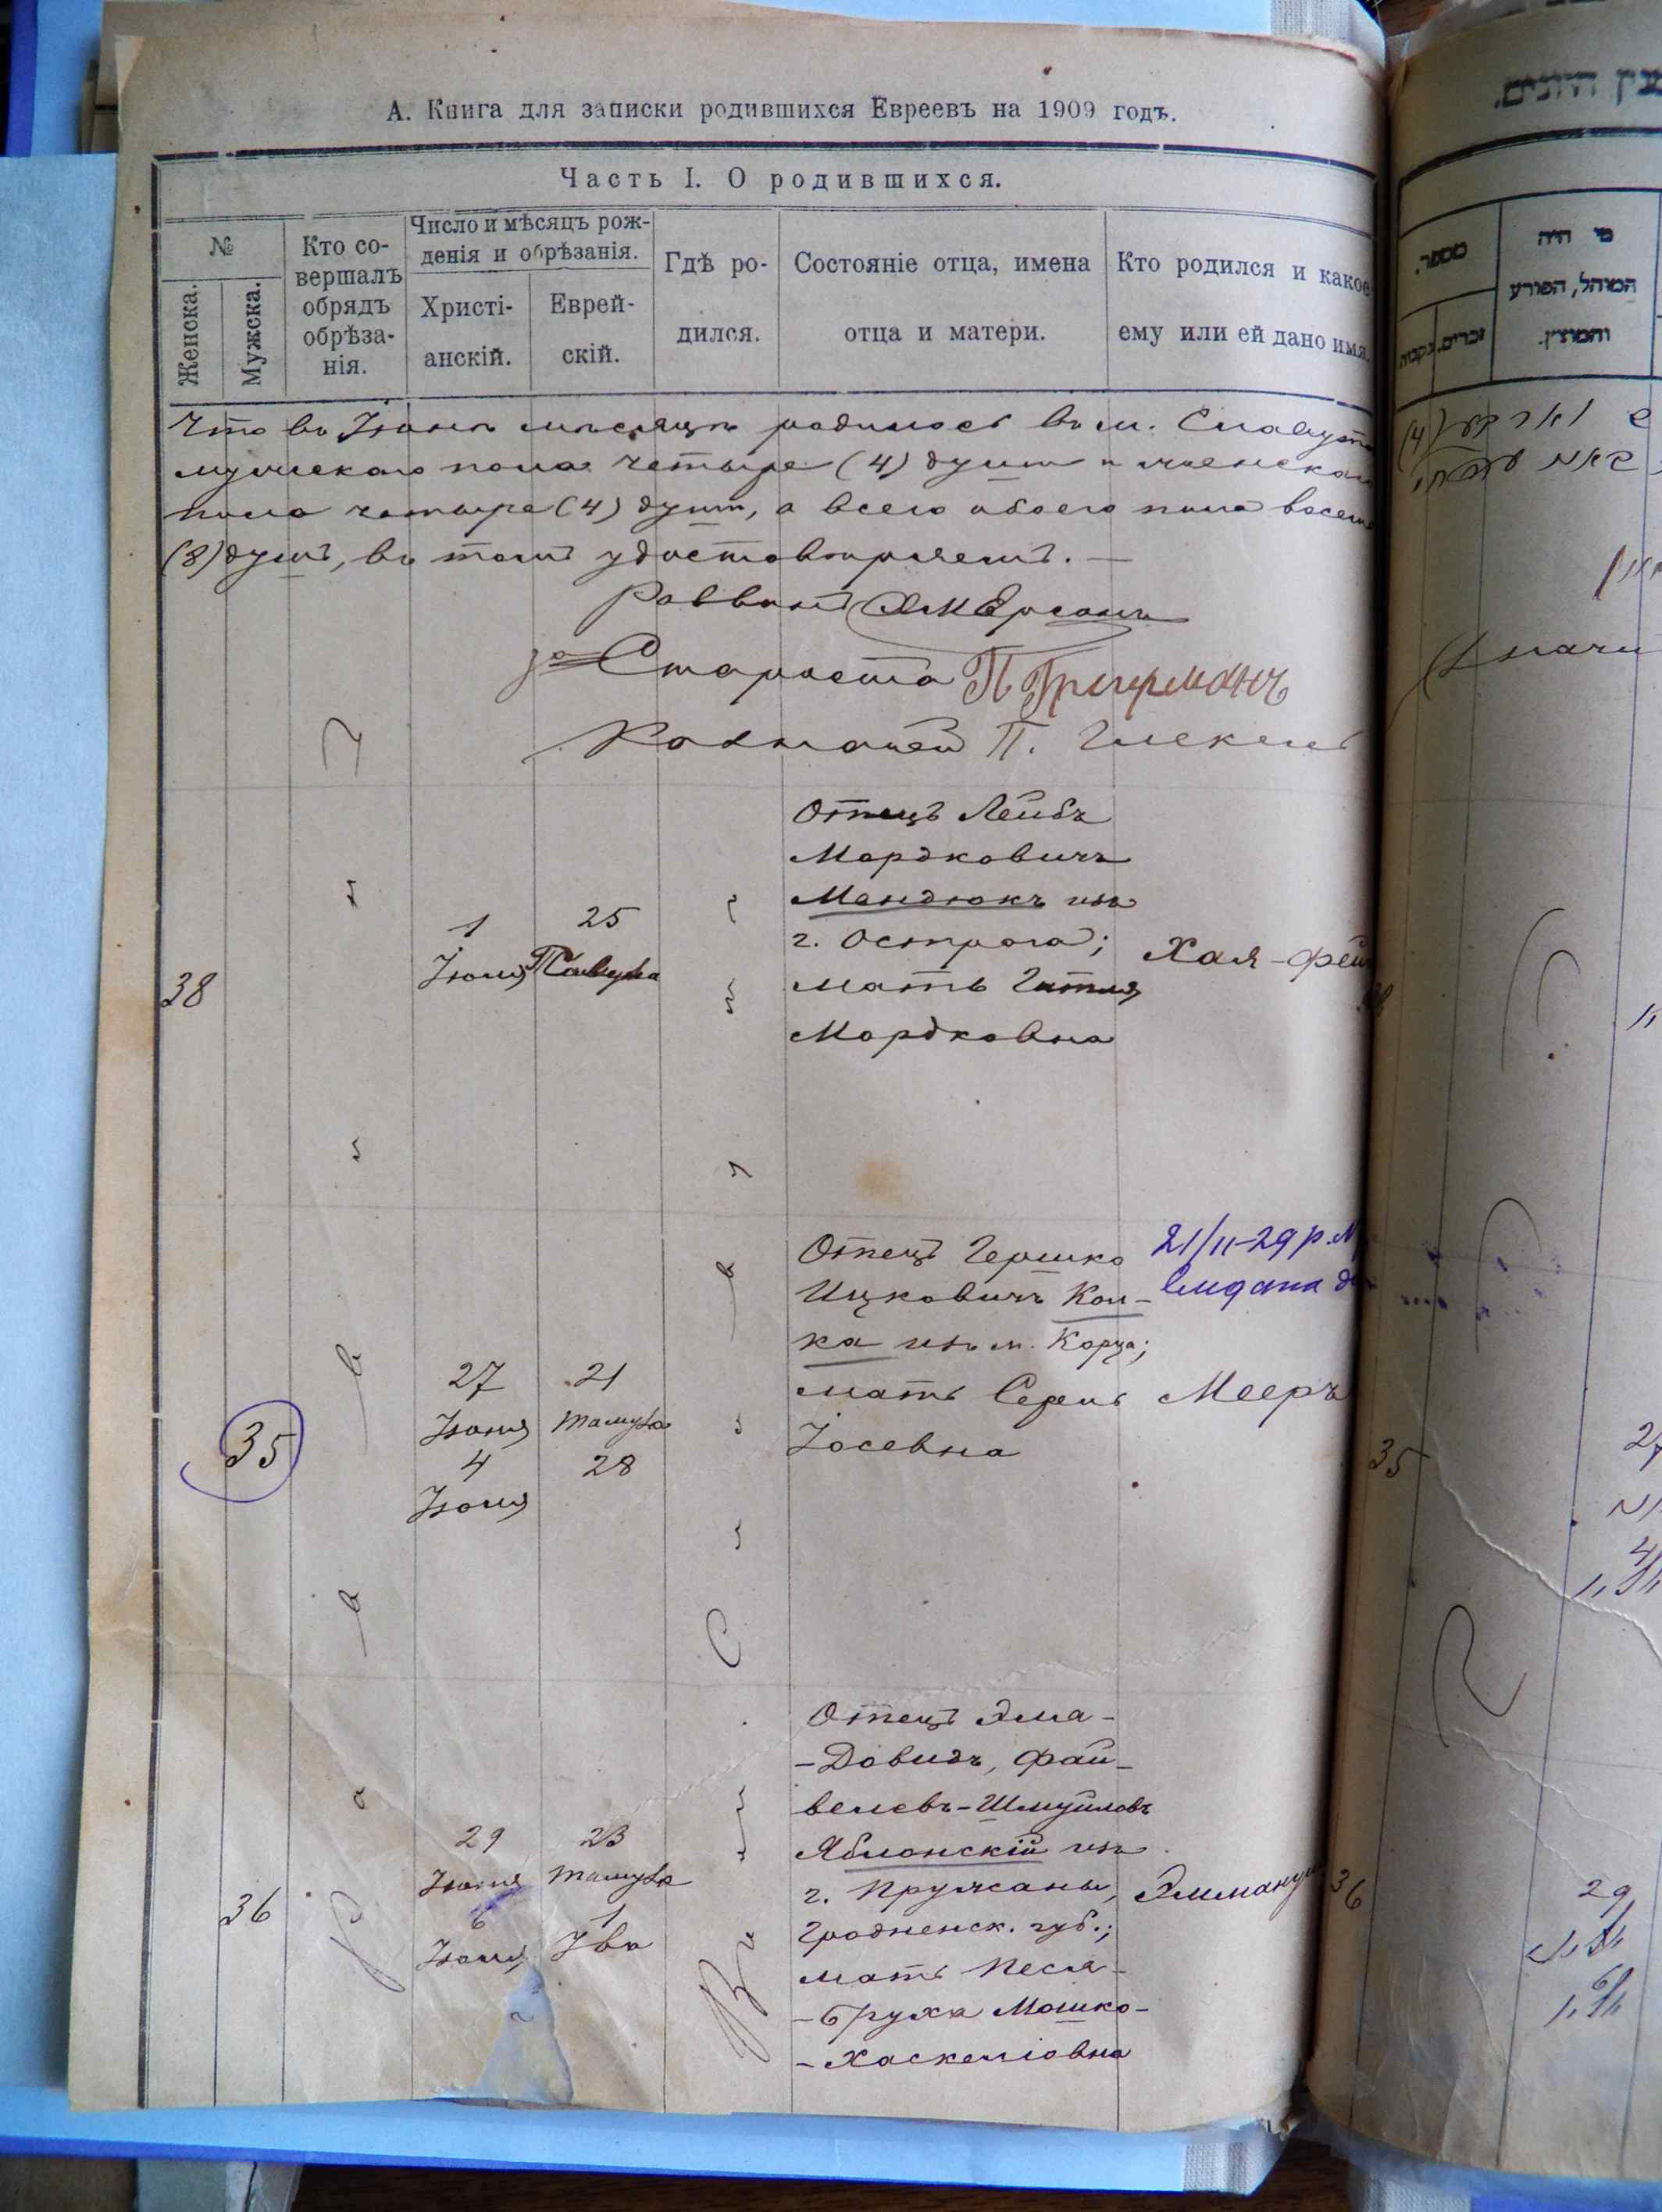 А. Книга для записки родившихся Евреевъ на 1909 годъ.
Часть I. О родившихся.
№
Женска.
Мужска.
Кто со-
вершалъ
обрядъ
обрѣза-
нія.
Число и мѣсяцъ рож-
денія и обрѣзанія.
Христі-
анскій.
Еврей-
скій.
Гдѣ ро-
дился.
Состояніе отца, имена
отца и матери.
Кто родился и какое
ему или ей дано имя.
Что въ Іюнѣ мѣсяцѣ родилось въ м. Славутѣ
мужскаго пола четыре (4) душъ и женскаго
пола четыре (4) душъ, а всего обоего пола восемь
(8) душъ, въ томъ удостовѣряемъ. —
Раввинъ
за Староста П
Казначей П.
38
1
Іюля
25
Тамуза
Отецъ Лейбъ
Мордковичъ
Мандюкъ изъ
г. Острога;
мать Гитля
Мордковна
Хая-Фей
35
27
Іюня
4
Іюля
21
Тамуза
28
Отецъ Гершко
Ицковичъ Кол-
ка изъ м. Корца;
мать Серель
Іосевна
21/11-29 р. №
видана
Мееръ
35
36
29
Іюня
6
Іюля
23
Тамуза
1
Ува
Отецъ Элиа-
-Довидъ, Фай-
велевъ-Шмуйловъ
Яблонскій изъ
г. Пружаны,
Гродненск. губ.;
мать Песля-
-Бруха Мошко-
-Хаскеліовна
Эммануи
36
מספר.
זכרים.
נקבות
מי היה
המוהל, הפורע
והמוצץ.
(4)
27
29